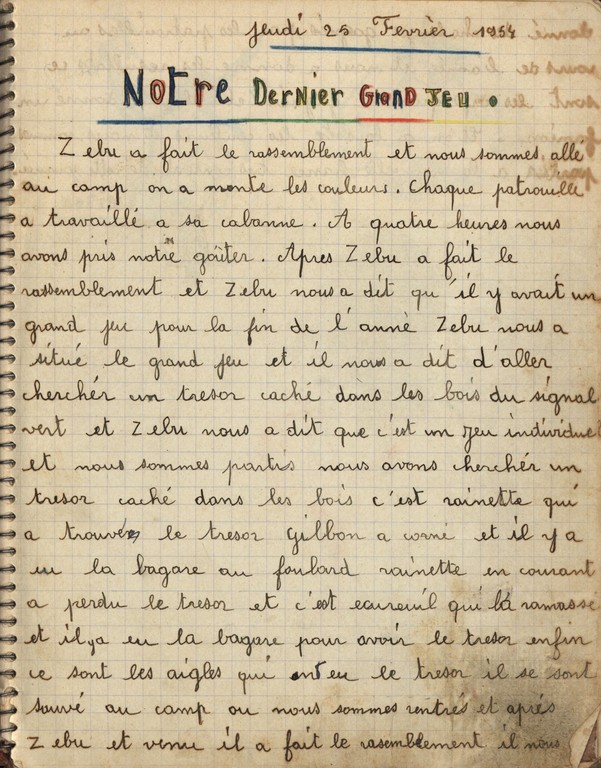 Jeudi 25 Fevrier 1954
Notre Dernier Grand Jeu.
Zebu a fait le rassemblement et nous sommes allé
au camp on a monte les couleurs. Chaque patrouille
a travaillé a sa cabanne. A quatre heures nous
avons pris notre goûter. Apres Zebu a fait le
rassemblement et Zebu nous a dit qu'il y avait un
grand jeu pour la fin de l'anné Zebu nous a
situé le grand jeu et il nous a dit d'aller
cherchér un tresor caché dans les bois du signal
vert et Zebu nous a dit que c'est un jeu individuel
et nous sommes partis nous avons cherchér un
tresor caché dans les bois c'est rainette qui
a trouvér le tresor Gibbon a corné et il y a
eu la bagare au foulard rainette en courant
a perdu le tresor et c'est ecureuil qui là ramasse
et il ya eu la bagare pour avoir le tresor enfin
ce sont les aigles qui ont eu le tresor il se sont
sauvé au camp ou nous sommes rentrés et aprés
Zebu et venu il a fait le rasemblement il nous